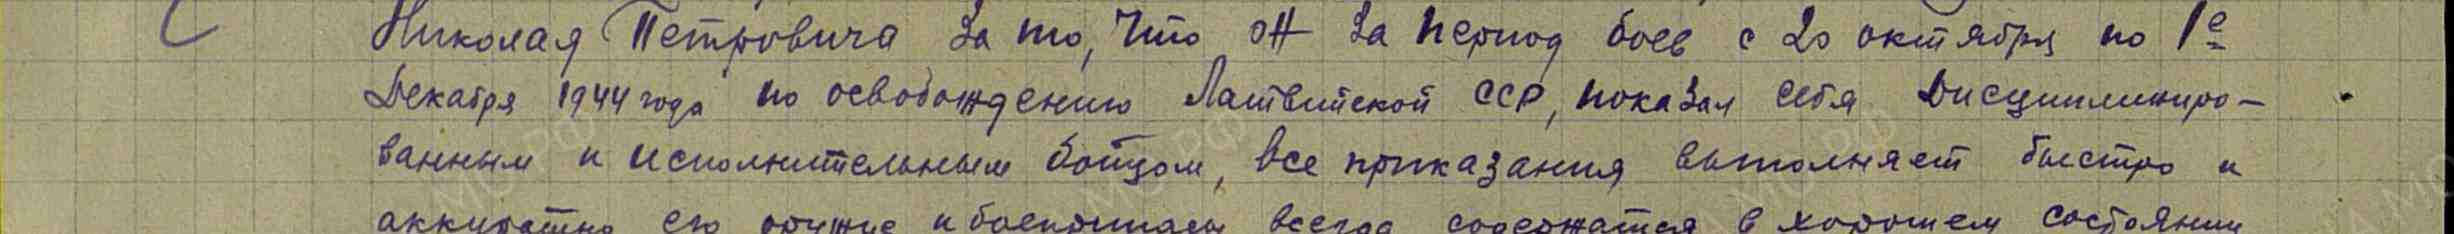 Николая Петровича за то, что он за период боев с 20 октября по 1е
Декабря 1944 года по освобождению Латвийской ССР, показал себя дисциплиниро-
ванным и исполнительным бойцом, все приказания выполняет быстро и
аккуратно его оружие и боеприпасы всегда содержатся в хорошем состоянии